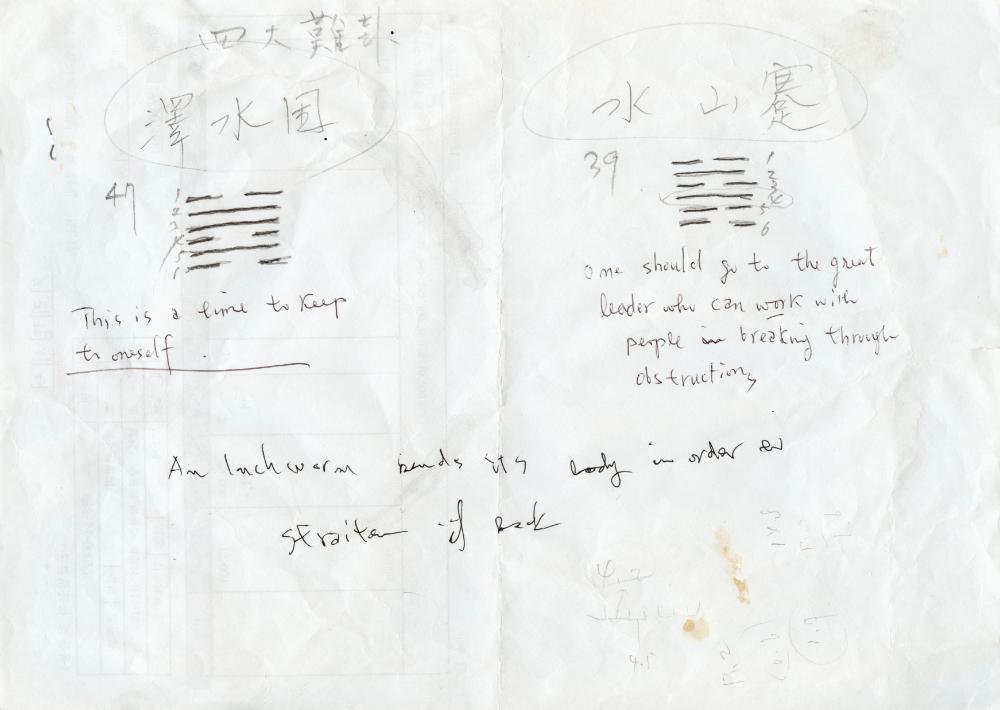 四大難卦
澤水困
47
1
2
3
4
5
6
This is a time to keep
to oneself.
水山蹇
39
1
2
3
4
5
6
One should go to the great
leader who can work with
people in breaking through
obstructions
An Inchworm bends its body in order to
straiten if back
4.5